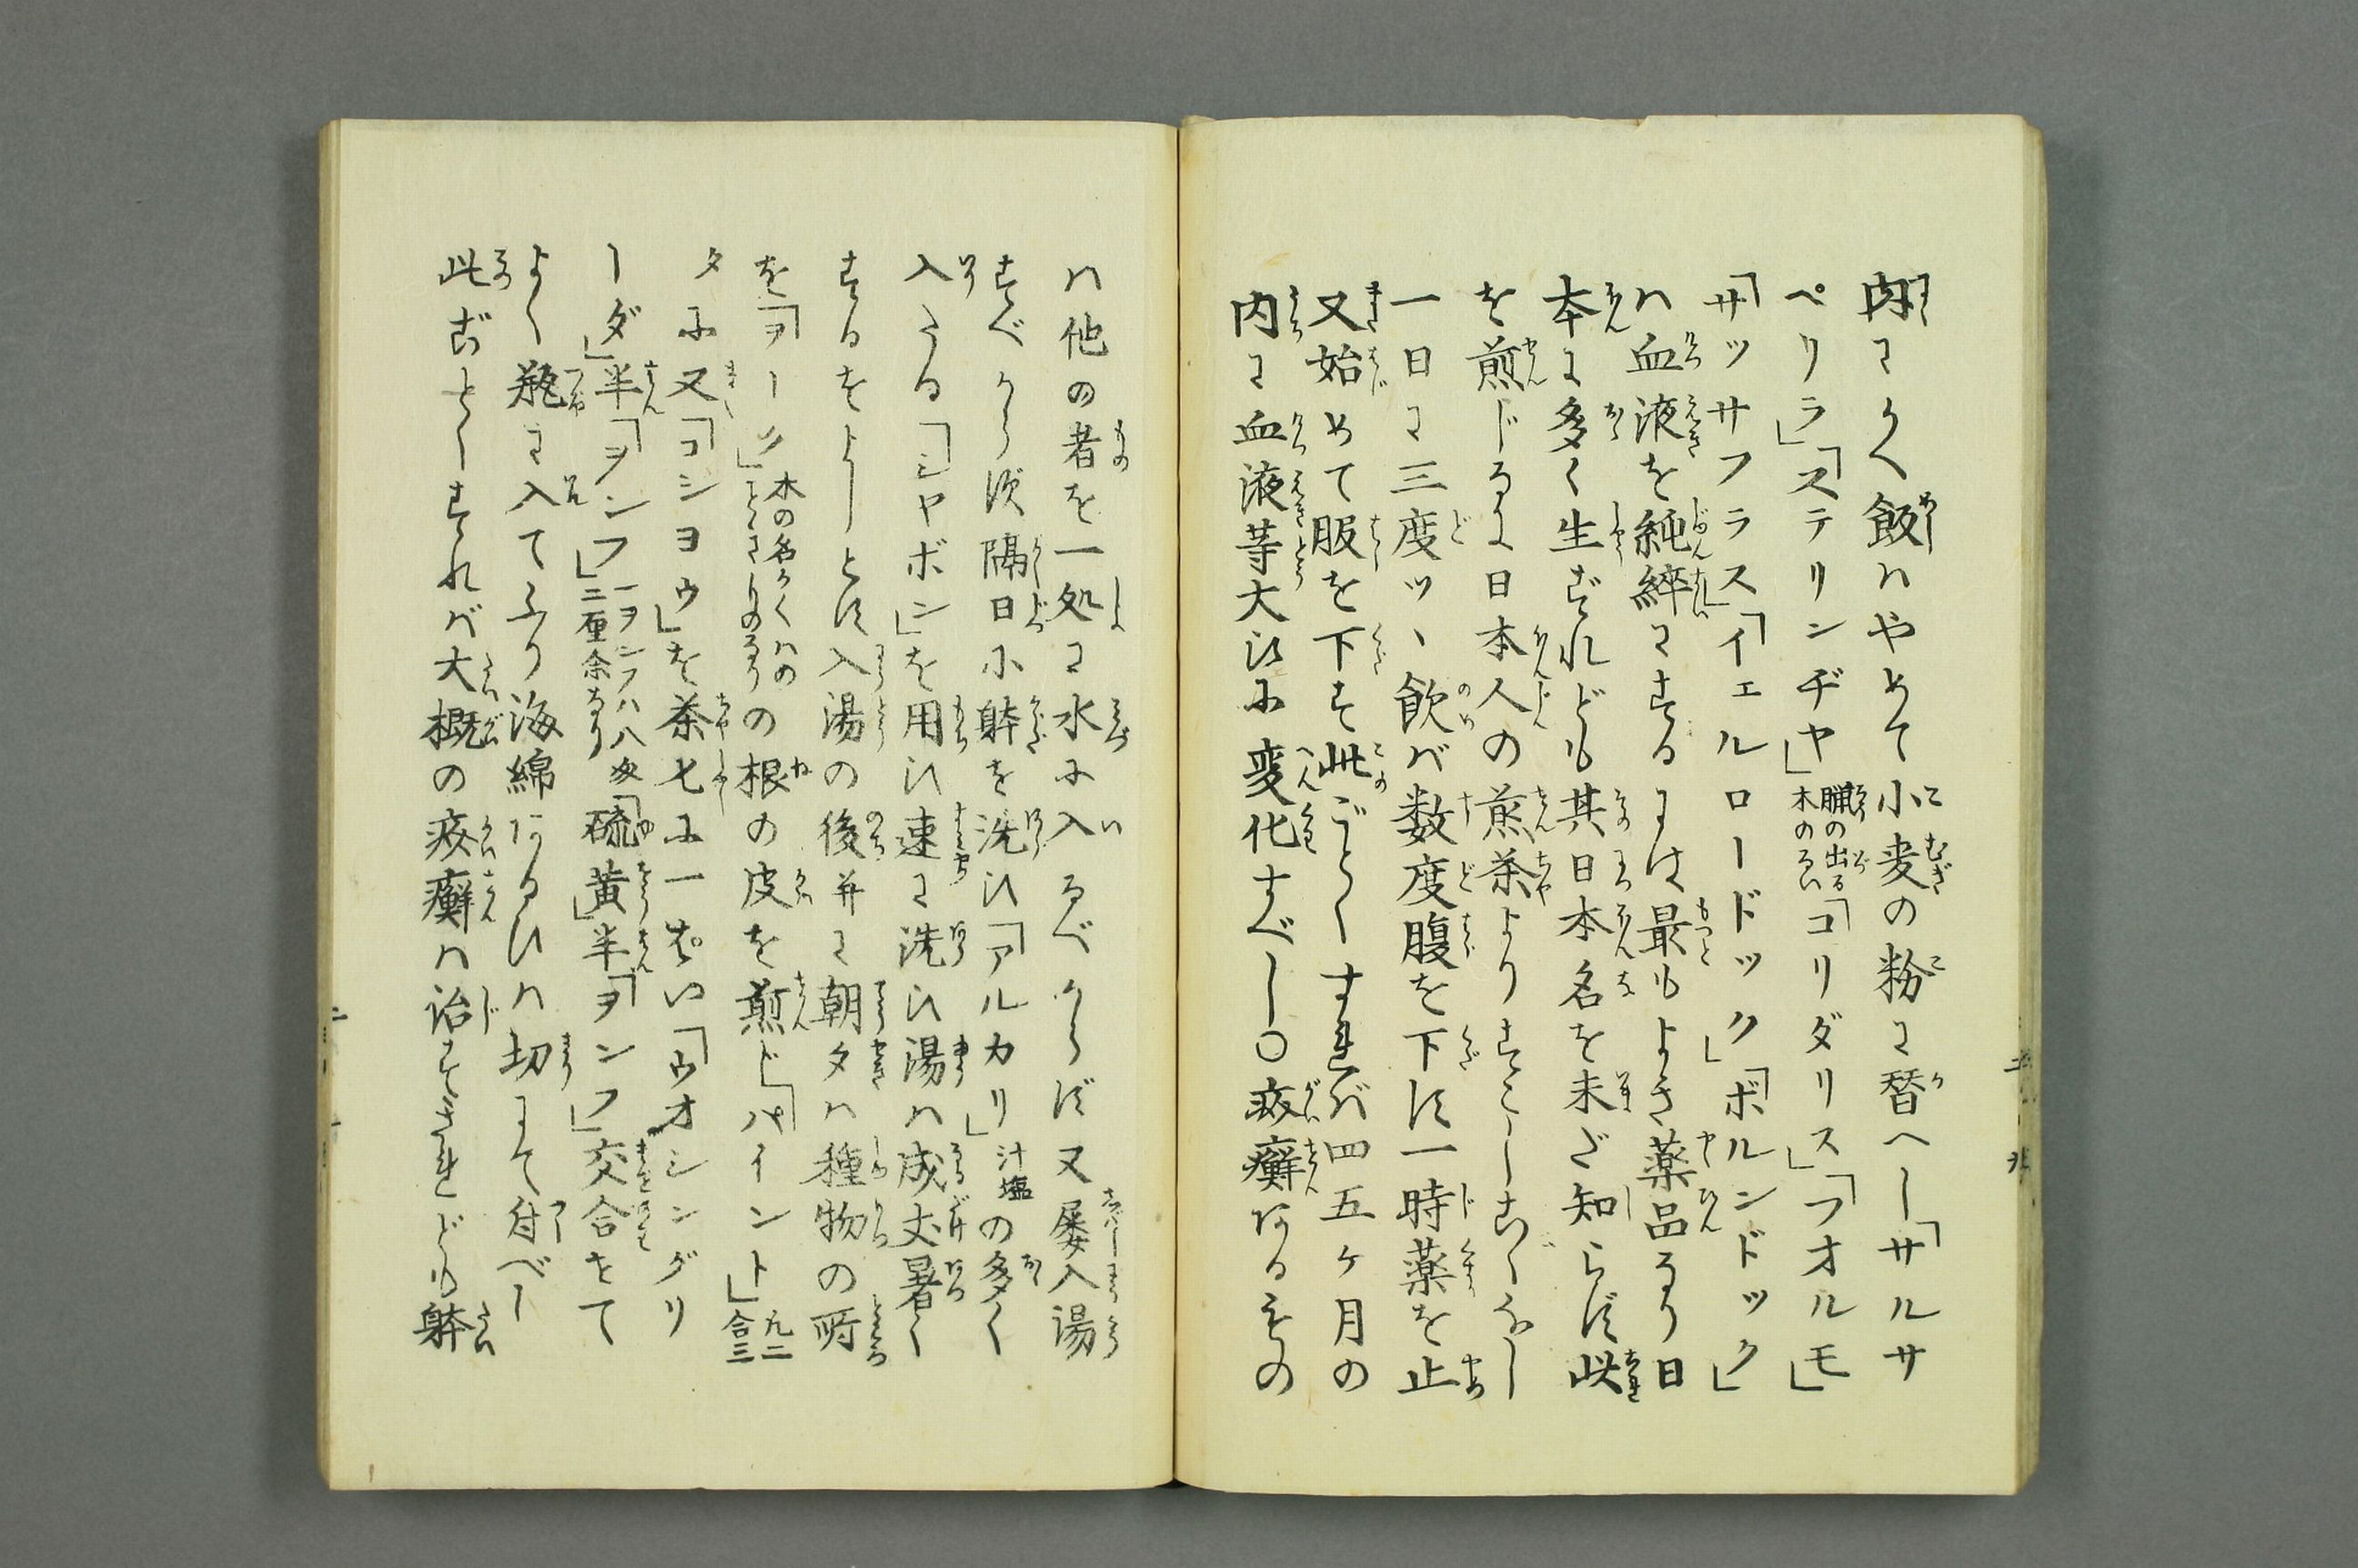 内にかく飯ハやめて小麦の粉に替へし「サルサ
ペリラ」「ステリンヂヤ」臘の出る木のるい「コリダリス」「フオルモ」
「サッサフラス」「イェルロードック」「ボルンドック」
ハ血液を純粋にするには最もよき薬品なり日
本に多く生ずれども其日本名を未だ知らず此
を煎じるに日本人の煎茶よりすこしこくなし
一日に三度ツヽ飲バ数度腹を下す一時薬を止
又始めて服を下す此ごとくすれバ四五ヶ月の
内に血液等大ひに変化すべし〇疥癬なるもの
ハ他の者を一処に水に入るべからず又屡入湯
すべからず隔日に躰を洗ひ「アルカリ」汁塩の多く
入たる「シヤボン」を用ひ速に洗ひ湯ハ成丈暑く
するをよしとす入湯の後并に朝夕ハ種物の所
を「ヲーク」木の名かくハのことさりのるりの根の皮を煎じ「パイント」凡二合三
タに又「コシヨウ」を茶七に一ぱい「ウオシングリ
ーダ」半「ヲンフ」一ヲンフハ八匁二厘余なり「硫黄」半「ヲンフ」交合をて
よく瓶に入てふり海綿あるひハ切にて付べし
此ごとくすれバ大概の疥癬ハ治すされども躰